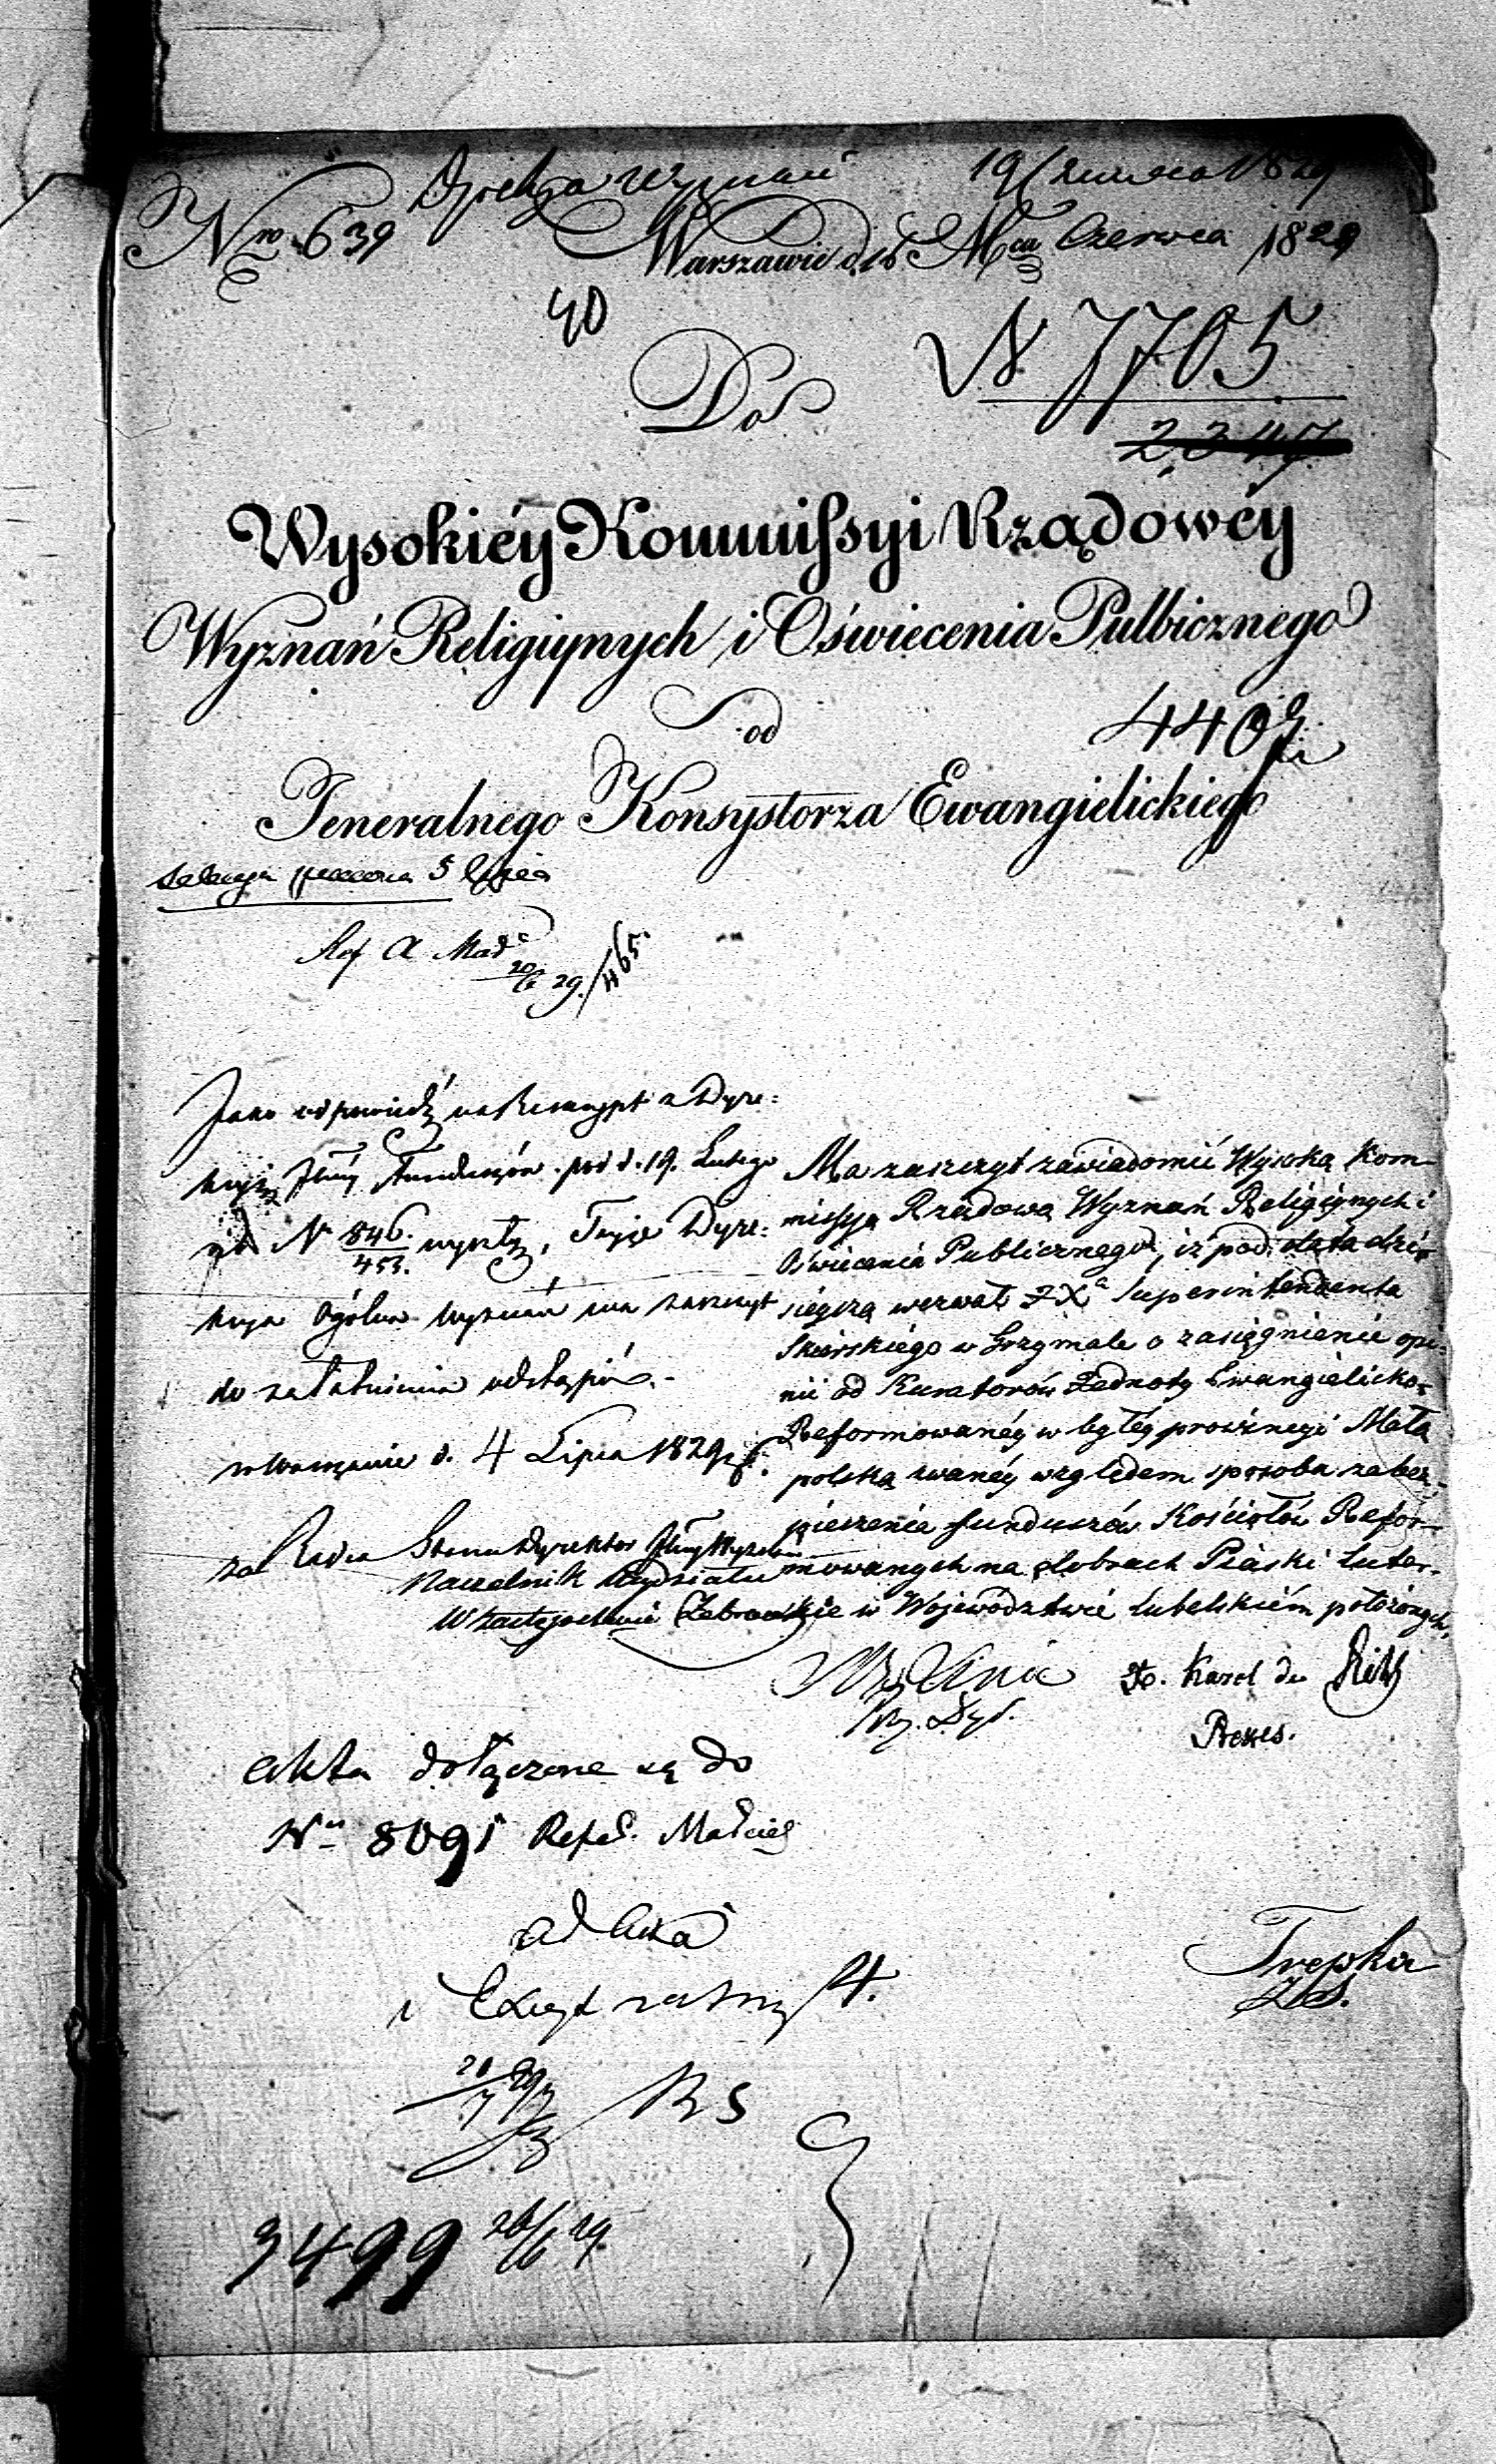 19 Czerwca 1829
Nro 639
Warszawie d. 16 Mca Czerwca 1829
40
Do
N 7705
2347
Wysokiéy Kommissyi Rządowéy
Wyznań Religiynych i Oświecenia Pulbicznego
od
Jeneralnego Konsystorza Ewangielickiego
5 Lipca
Ref.
20/6 29.
Jako odpowiedź na Reskrypt z Dyre:
kcyi Funduszów pod d. 19. Lutego
N 846./453. wyszły, Dyre:
kcya Ogólna Wyznań ma zaszczyt
do załatwienia odstąpić.-
w Warszawie d. 4 Lipca 1829 r.
za Radca Stanu Dyrektor
Naczelnik Wydziału
Ma zaszczyt zawiadomić Wysoką Kom-
missyą Rządową Wyznań Religiynych i
Oświecenia Publicznego, iż pod datą dzi-
sieyszą wezwał JXa Superintendenta
Skierskiego w Grzymale o zasięgnienie opi-
nii od Kuratorów Jednoty Ewangielicko-
Reformowanéy w byłéy prowincyi Mało
polską zwanéy względem sposobu zabez-
pieczenia funduszów Kościołów Refor-
mowanych na dobrach Piaski Luter-
skie w Województwie Lubelskiém położonych,
X. Karol de
Prezes.
akta dołączone są do
Nru 8091
ad acta
i
4.
Trepka
9499 26/6 29.